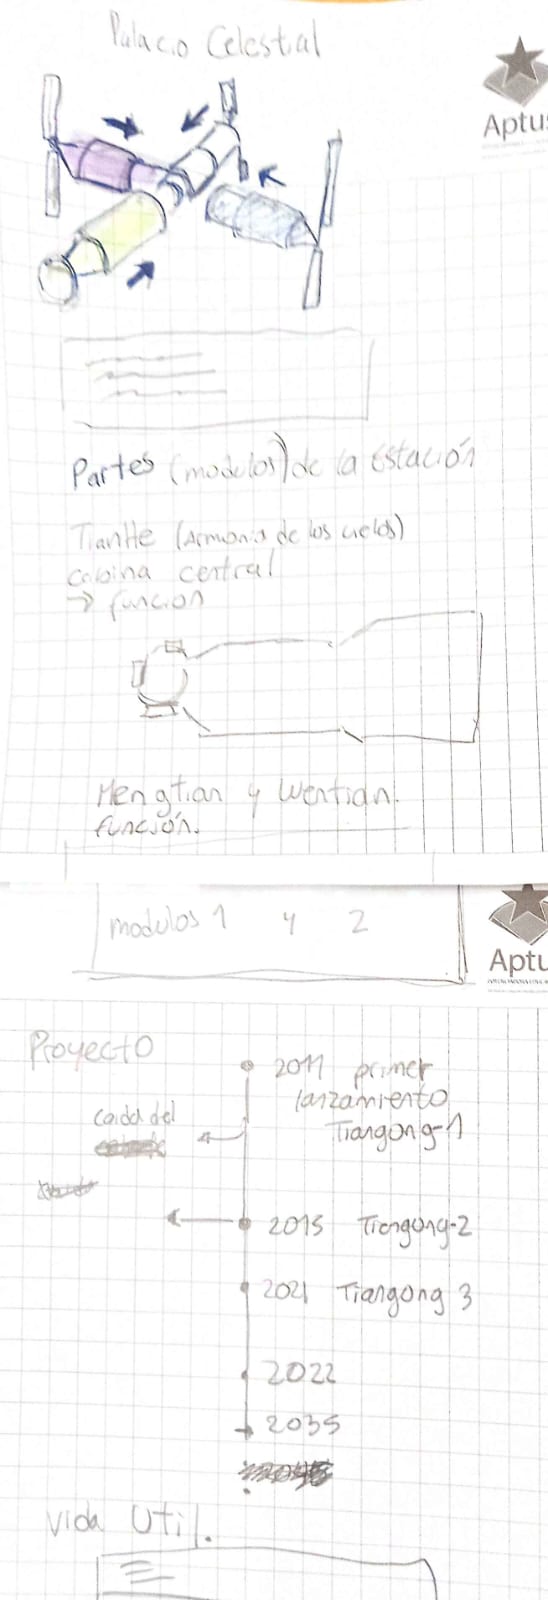 Palacio Celestial
Aptus
Partes (modulos) de la Estación
TianHe (Armonia de los cielos)
cabina central
→ función
Mengtian y Wentian.
función.
modulos 1 y 2
Aptu
Proyecto
2011 primer
lanzamiento
Tiangong-1
caida del
2015 Tiangong-2
2021 Tiangong 3
2022
2035
vida Util.